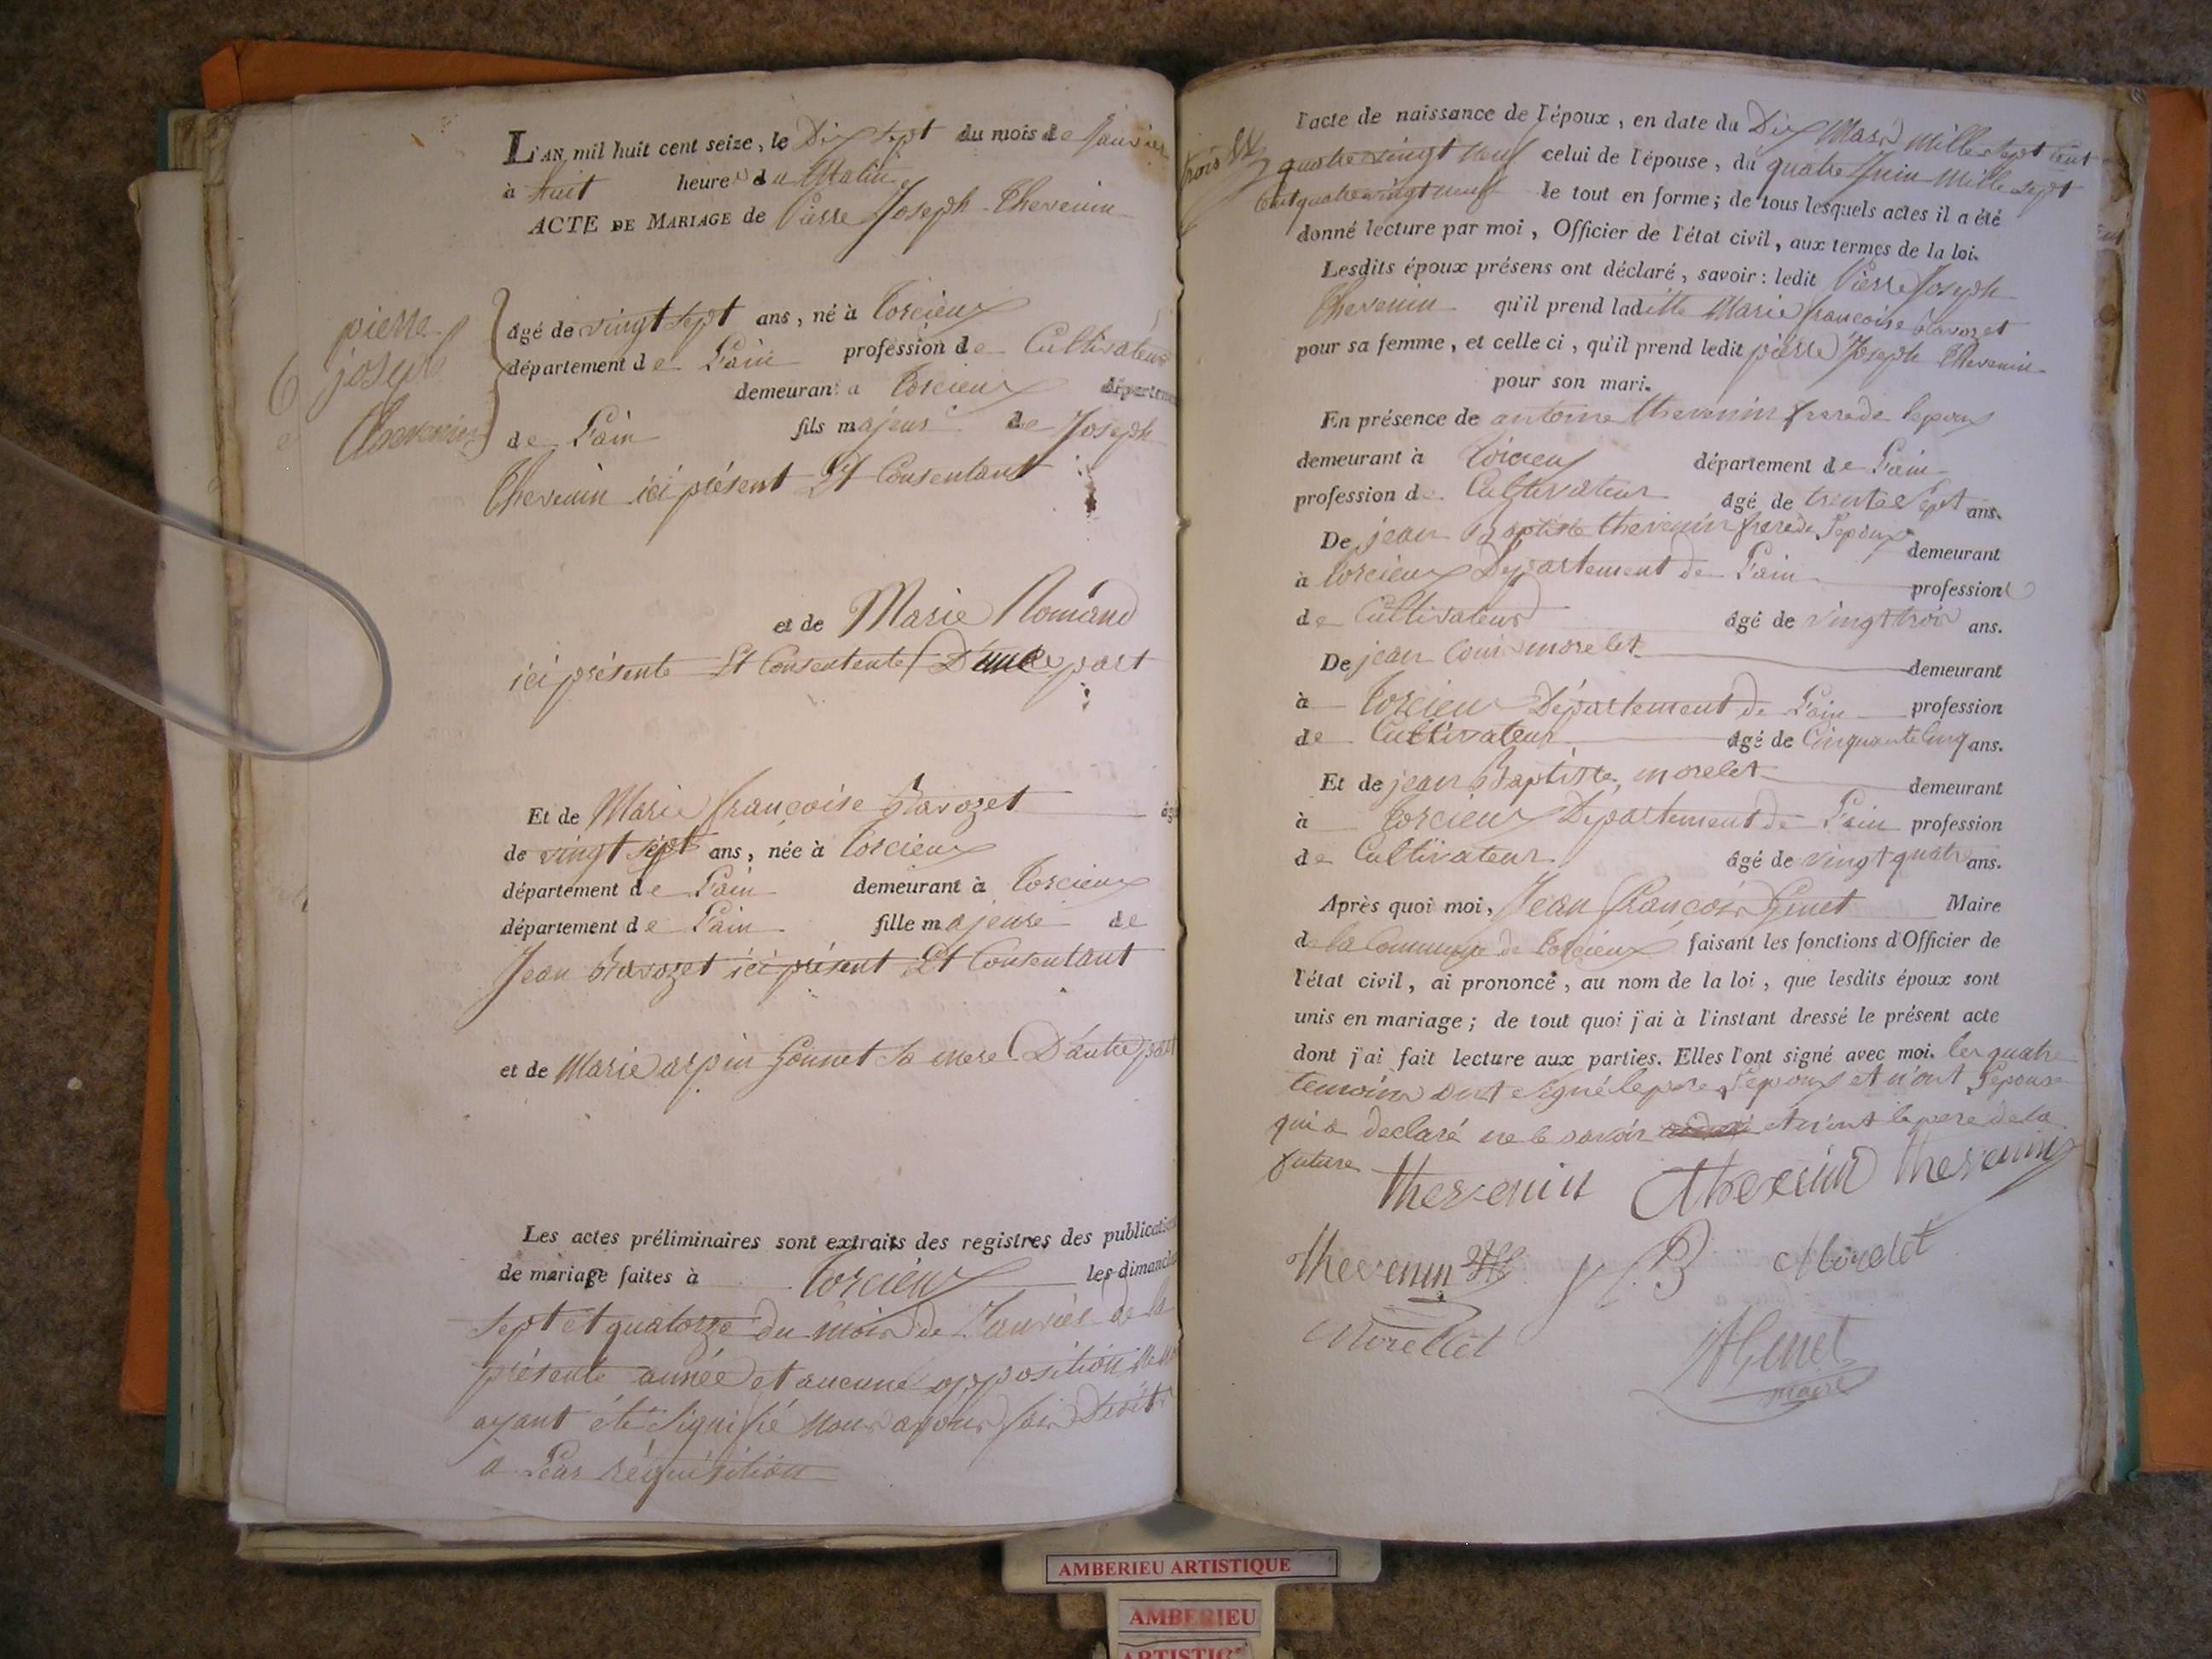 L'AN mil huit cent seize, le Dix sept du mois de Janvier
à huit heures du Matin
ACTE DE MARIAGE de Pierre Joseph Thevenin
pierre
joseph
thevenin
6
âgé de vingt sept ans, né à Torcieux
département de L'ain profession de Cultivateur
demeurant a Torcieux département
de L'ain fils majeur de Joseph
Thevenin ici présent Et Consentant
et de Marie Romand
ici présente Et Consentente D'une part
Et de Marie françoise Ravozet âgée
de vingt sept ans, née à Torcieux
département de L'ain demeurant à Torcieux
département de L'ain fille majeure de
Jean Ravozet ici présent Et Consentant
et de Marie arpin Gonnet sa mere D'autre part
Les actes préliminaires sont extraits des registres des publications
de mariage faites à Torcieux les dimanches
sept et quatorze du mois de Janvier de la
présente année et aucune opposition ne
ayant été signifié Nous avons fais Droit
a Leur réquisition
l'acte de naissance de l'époux, en date du Dix Mars Mille sept Cent
quatre vingt neuf celui de l'épouse, du quatre Juin Mille sept
Cent quatre vingt neuf le tout en forme; de tous lesquels actes il a été
donné lecture par moi, Officier de l'état civil, aux termes de la loi.
Lesdits époux présens ont déclaré, savoir: ledit Pierre Joseph
Thevenin qu'il prend laditte Marie françoise Ravozet
pour sa femme, et celle ci, qu'il prend ledit pierre Joseph Thevenin
pour son mari.
En présence de antoine thevenin frere de lepoux
demeurant à Torcieux département de L'ain
profession de Cultivateur âgé de trente sept ans.
De jean Baptiste thevenin frere de Lepoux demeurant
à Torcieux Departement de L'ain profession
de Cultivateur âgé de vingt trois ans.
De jean Louis morelet demeurant
à Torcieu Département de L'ain profession
de Cultivateur âgé de Cinquante Cinq ans.
Et de jean Baptiste morelet demeurant
à Torcieux Departement de L'ain profession
de Cultivateur âgé de vingt quatre ans.
Après quoi moi, Jean françois Genet Maire
de la Commune de Torcieux faisant les fonctions d'Officier de
l'état civil, ai prononcé, au nom de la loi, que lesdits époux sont
unis en mariage; de tout quoi j'ai à l'instant dressé le présent acte
dont j'ai fait lecture aux parties. Elles l'ont signé avec moi. les quatre
temoins ont signé le pere Lepoux et n'ont Lepouse
qui a declaré ne le savoir et n'ont le pere de la
future
thevenin Athevenin thevenin
thevenin J L B Morelet
Morellet
JfGenet
maire
AMBERIEU ARTISTIQUE
AMBERIEU
ARTISTIQUE